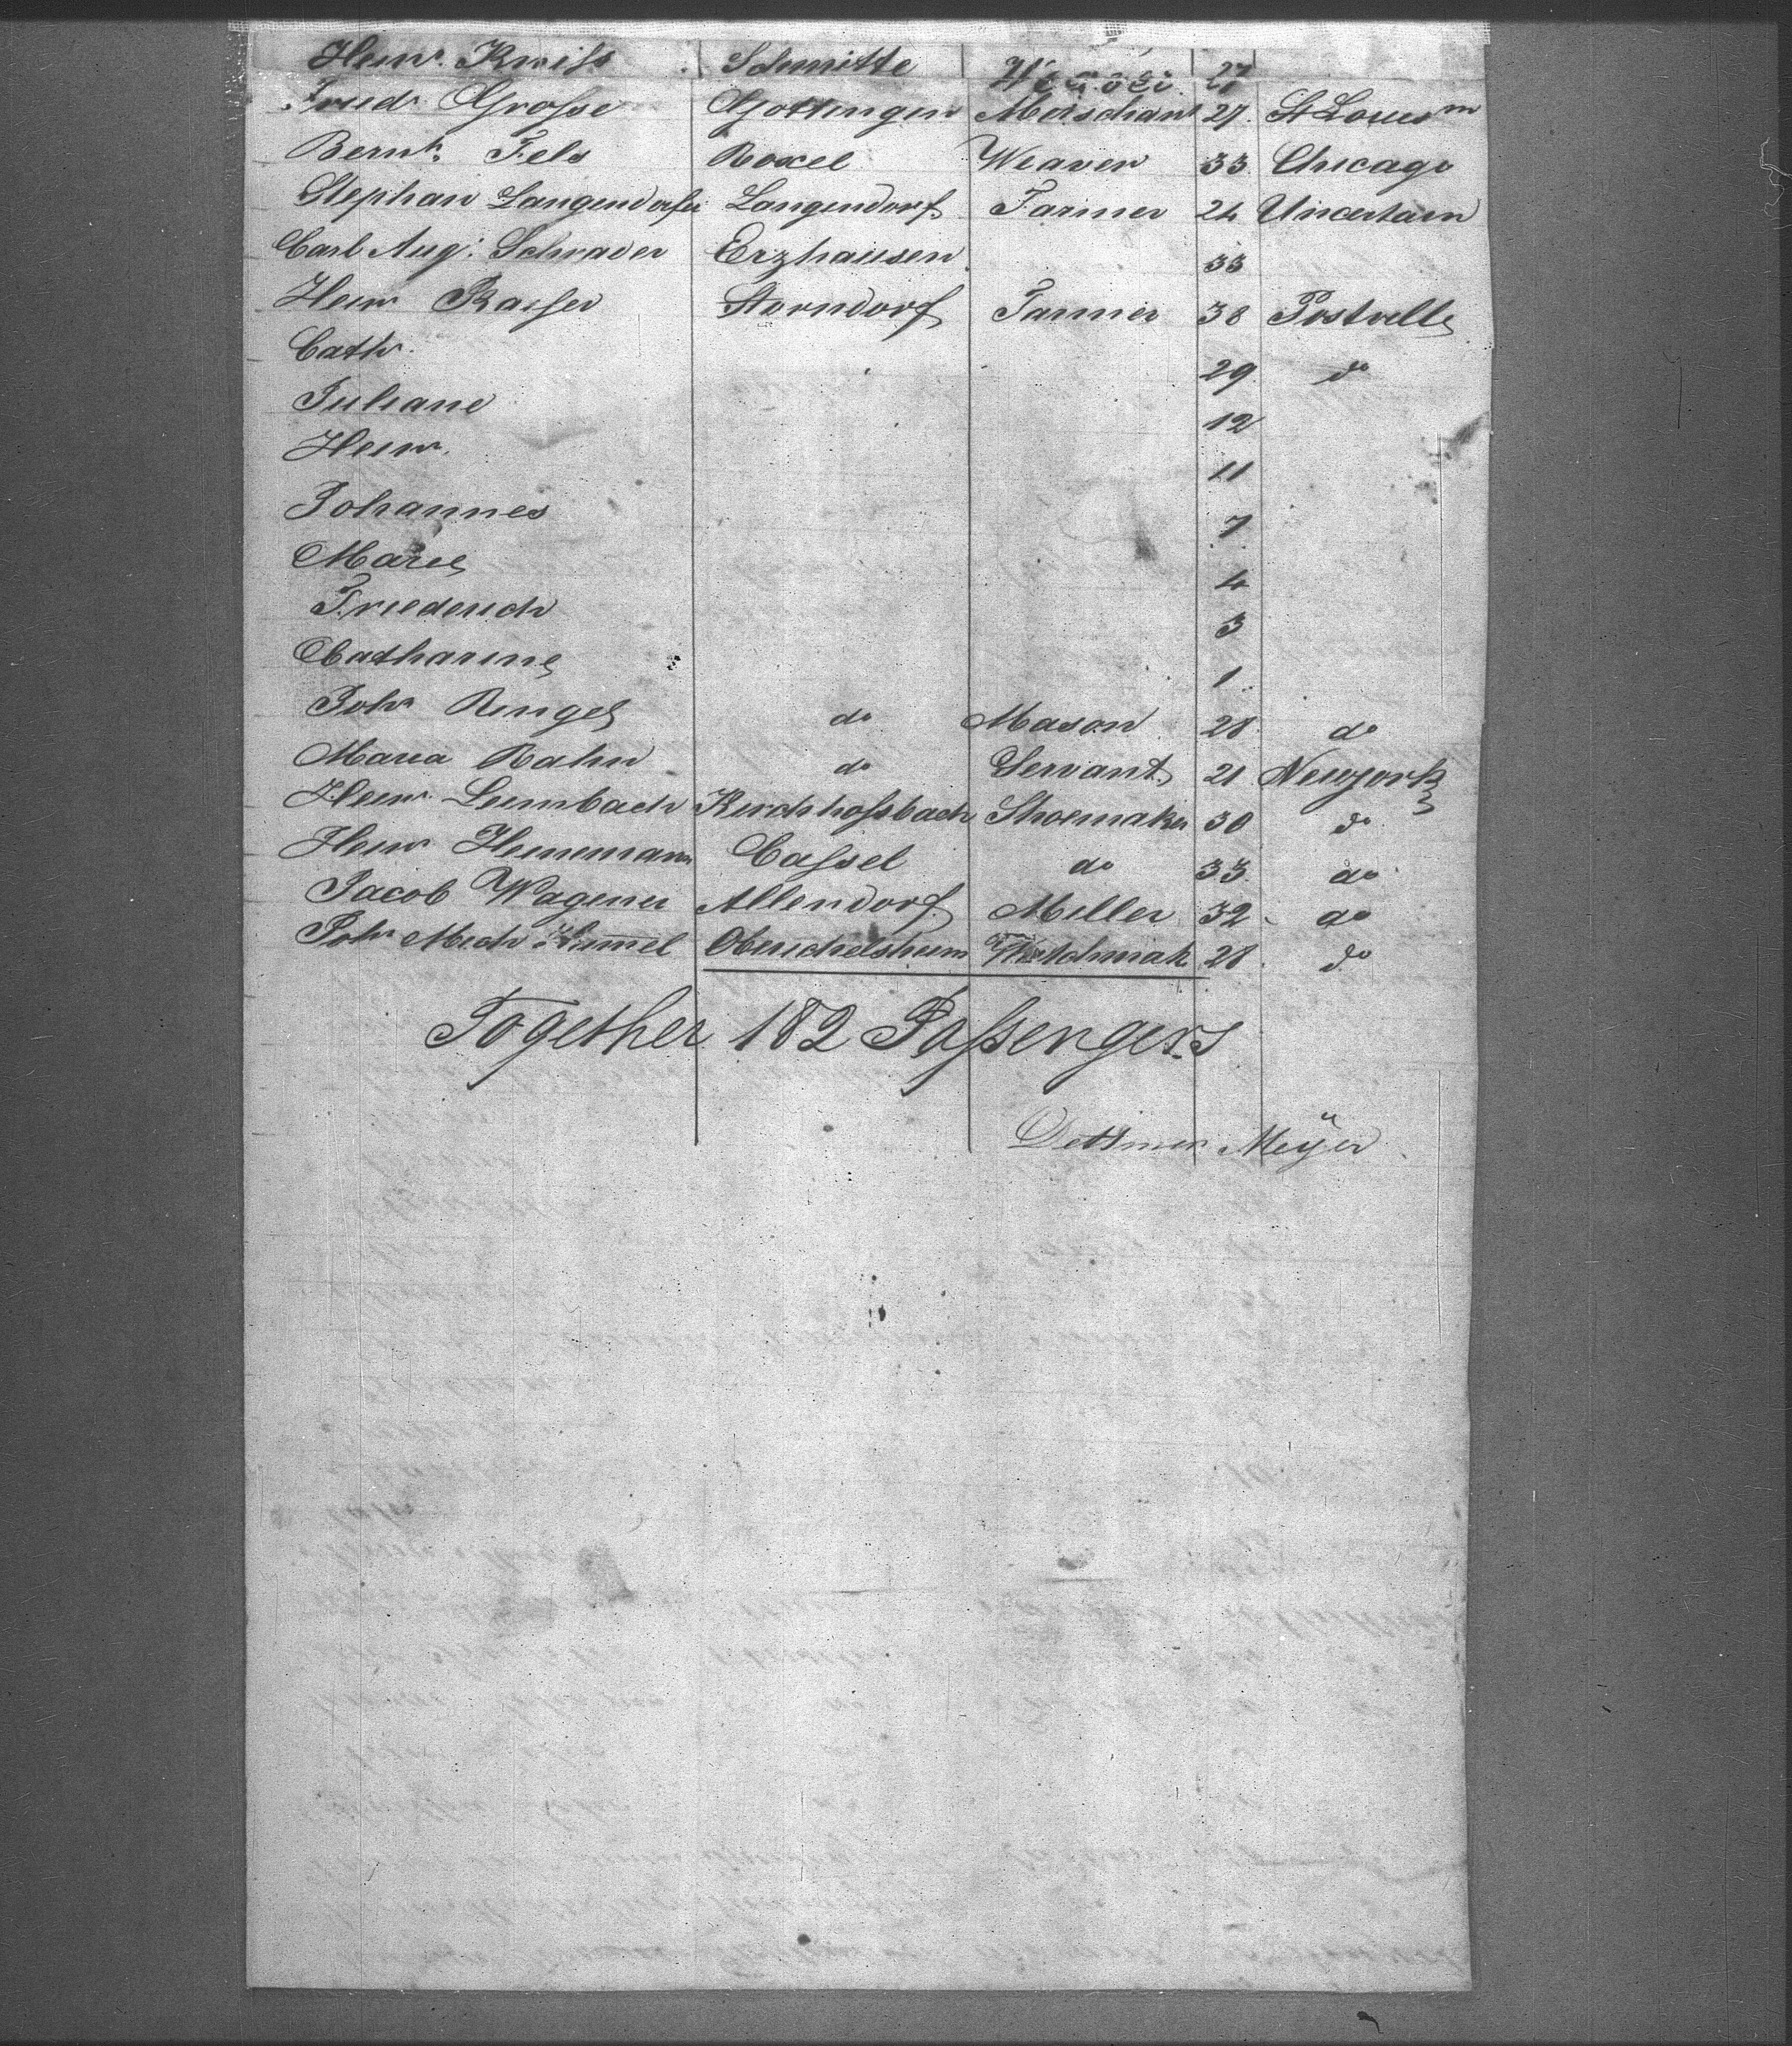 Heinr. Kniss Schmitte 27
Fried. Grosse Gottingen Merschant 27. St Louis m
Bernh. Fels Roxel Weaver 33 Chicago
Stephan Langendorfer Langendorf Farmer 24 Uncertain
Carl Aug: Schrader Erzhausen 33
Heinr Kaiser Storndorf Farmer 38 Postville
Cath. 29 do
Juliane 12
Heinr. 11
Johannes 7
Marie 4
Friederich 3
Catharine 1
Joh Ringel do Mason 28 do
Maria Rahn do Servant 21 Newyork
Heinr. Leimbach Kirchhossbach Shoemaker 30 do
Heinr Heinemann Cassel do 33 do
Jacob Wagener Allendorf Miller 32 do
Joh Mich 28 do
Together 182 Passengers
Dettmer Meÿer